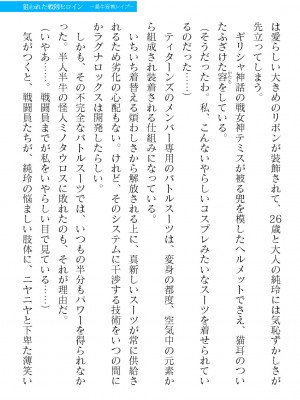 狙われた戦闘ヒロイン
は愛らしい大きめのリボンが装飾されて、26歳と大人の純玲には気恥ずかしさが
先立ってしまう。
ギリシャ神話の戦女神テミスが被る兜を模したヘルメットでさえ、猫耳のつい
たふざけた姿をしている。
(そうだったわ。私、こんないやらしいコスプレみたいなスーツを着せられてい
るのだった……)
ティターンズのメンバー専用のバトルスーツは、変身の都度、空気中の元素か
ら組成され装着される仕組みになっている。
いちいち着替える煩わしさから解放される上に、真新しいスーツが常に供給さ
れるため劣化の心配もない。けれど、そのシステムに干渉する技術をいつの間に
かラグナロックスは開発したらしい。
しかも、その不完全なバトルスーツでは、いつもの半分もパワーを得られなか
った。半人半牛の怪人ミノタウロスに敗れたのも、それが理由だ。
(いやあ……。戦闘員までが私をいやらしい目で見ている……)
気がつくと、戦闘員たちが、純玲の悩ましい肢体に、ニヤニヤと下卑た薄笑い